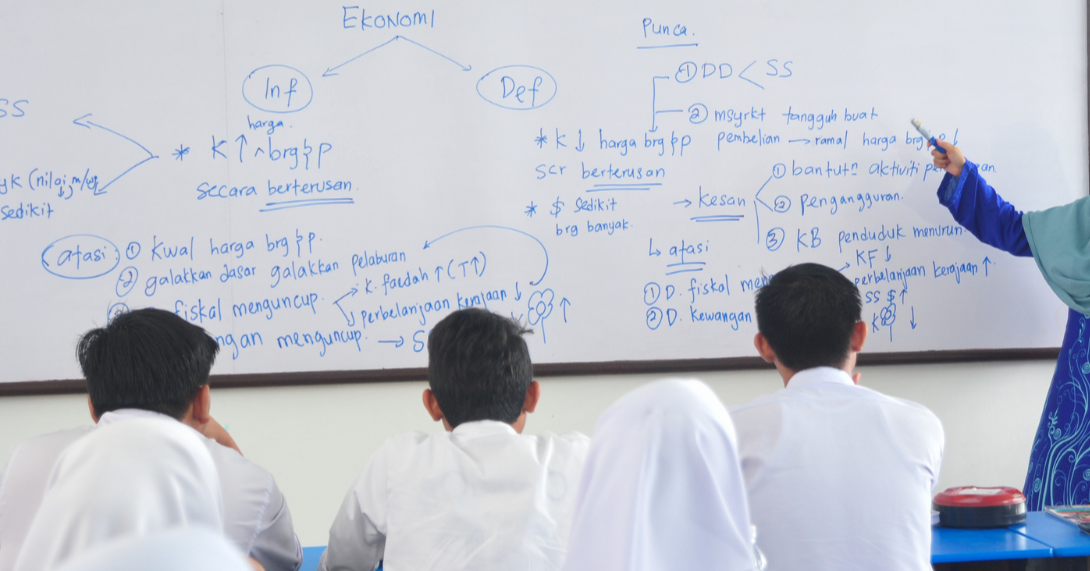 EKONOMI
Inf
Def
SS
harga
* K ↑ ^ brg & p
secara berterusan.
yk (nilai m/w
sedikit
atasi
① Kwal harga brg & p.
② galakkan dasar galakkan pelaburan
fiskal menguncup.
K. faedah ↑ (T↑)
perbelanjaan kerajaan ↓
ngan menguncup. → S
↑
Punca.
① DD < SS
② msyrkt tangguh buat
pembelian → ramal harga brg
* K ↓ harga brg & p
scr berterusan
* $ sedikit
brg banyak.
→ Kesan
① bantut² aktiviti
② pengangguran.
③ KB penduduk menurun
↳ atasi
① D. fiskal me
KF ↓
perbelanjaan kerajaan ↑
② D. Kewangan
SS $ ↑
K ↓